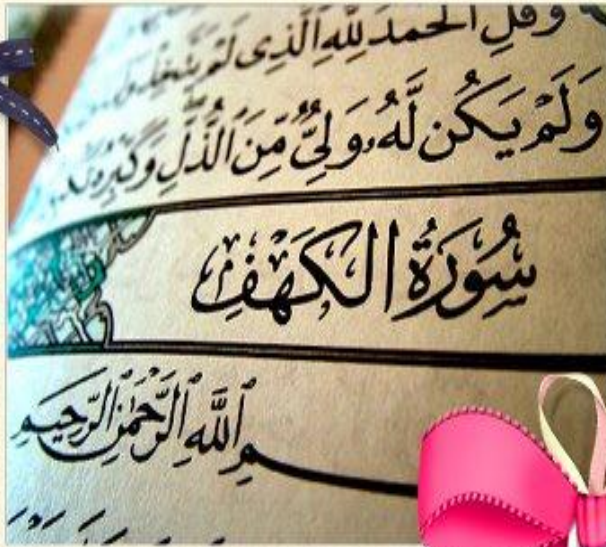 وَقُلِ ٱلْحَمْدُ لِلَّهِ ٱلَّذِى لَمْ يَتَّخِذْ
وَلَمْ يَكُن لَّهُۥ وَلِىٌّ مِّنَ ٱلذُّلِّ وَكَبِّرْهُ
سُورَةُ الكَهْفِ
ٱللَّهِ ٱلرَّحْمَٰنِ ٱلرَّحِيمِ